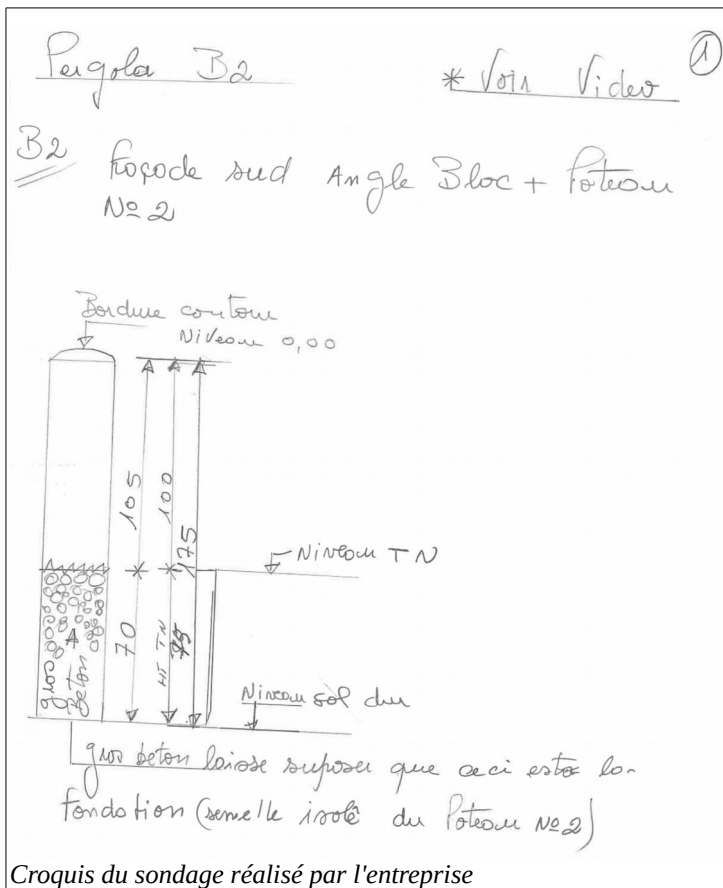 Pergola B2
* Voir Video
1
B2 Façade sud Angle Bloc + Poteau
Nº 2
Bordure contour
Niveau 0,00
105
100
175
Niveau TN
70
HT TN
gros
Beton
Niveau sol dur
gros beton laisse suposer que ceci est la
fondation (semelle isolê du Poteau Nº 2)
Croquis du sondage réalisé par l'entreprise